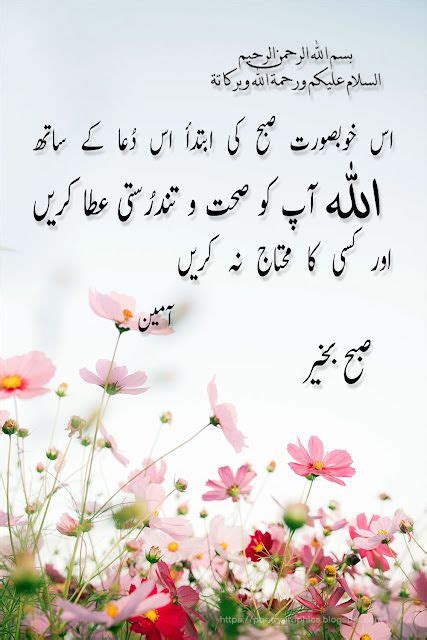 بسم الله الرحمن الرحيم
السلام عليكم ورحمة الله وبركاتة
اس خوبصورت صبح کی ابتدأ اس دُعا کے ساتھ
الله آپ کو صحت و تندرُستی عطا کریں
اور کسی کا محتاج نہ کریں
آمین
صبح بخیر
https://poetrygraphics.blogspot.com